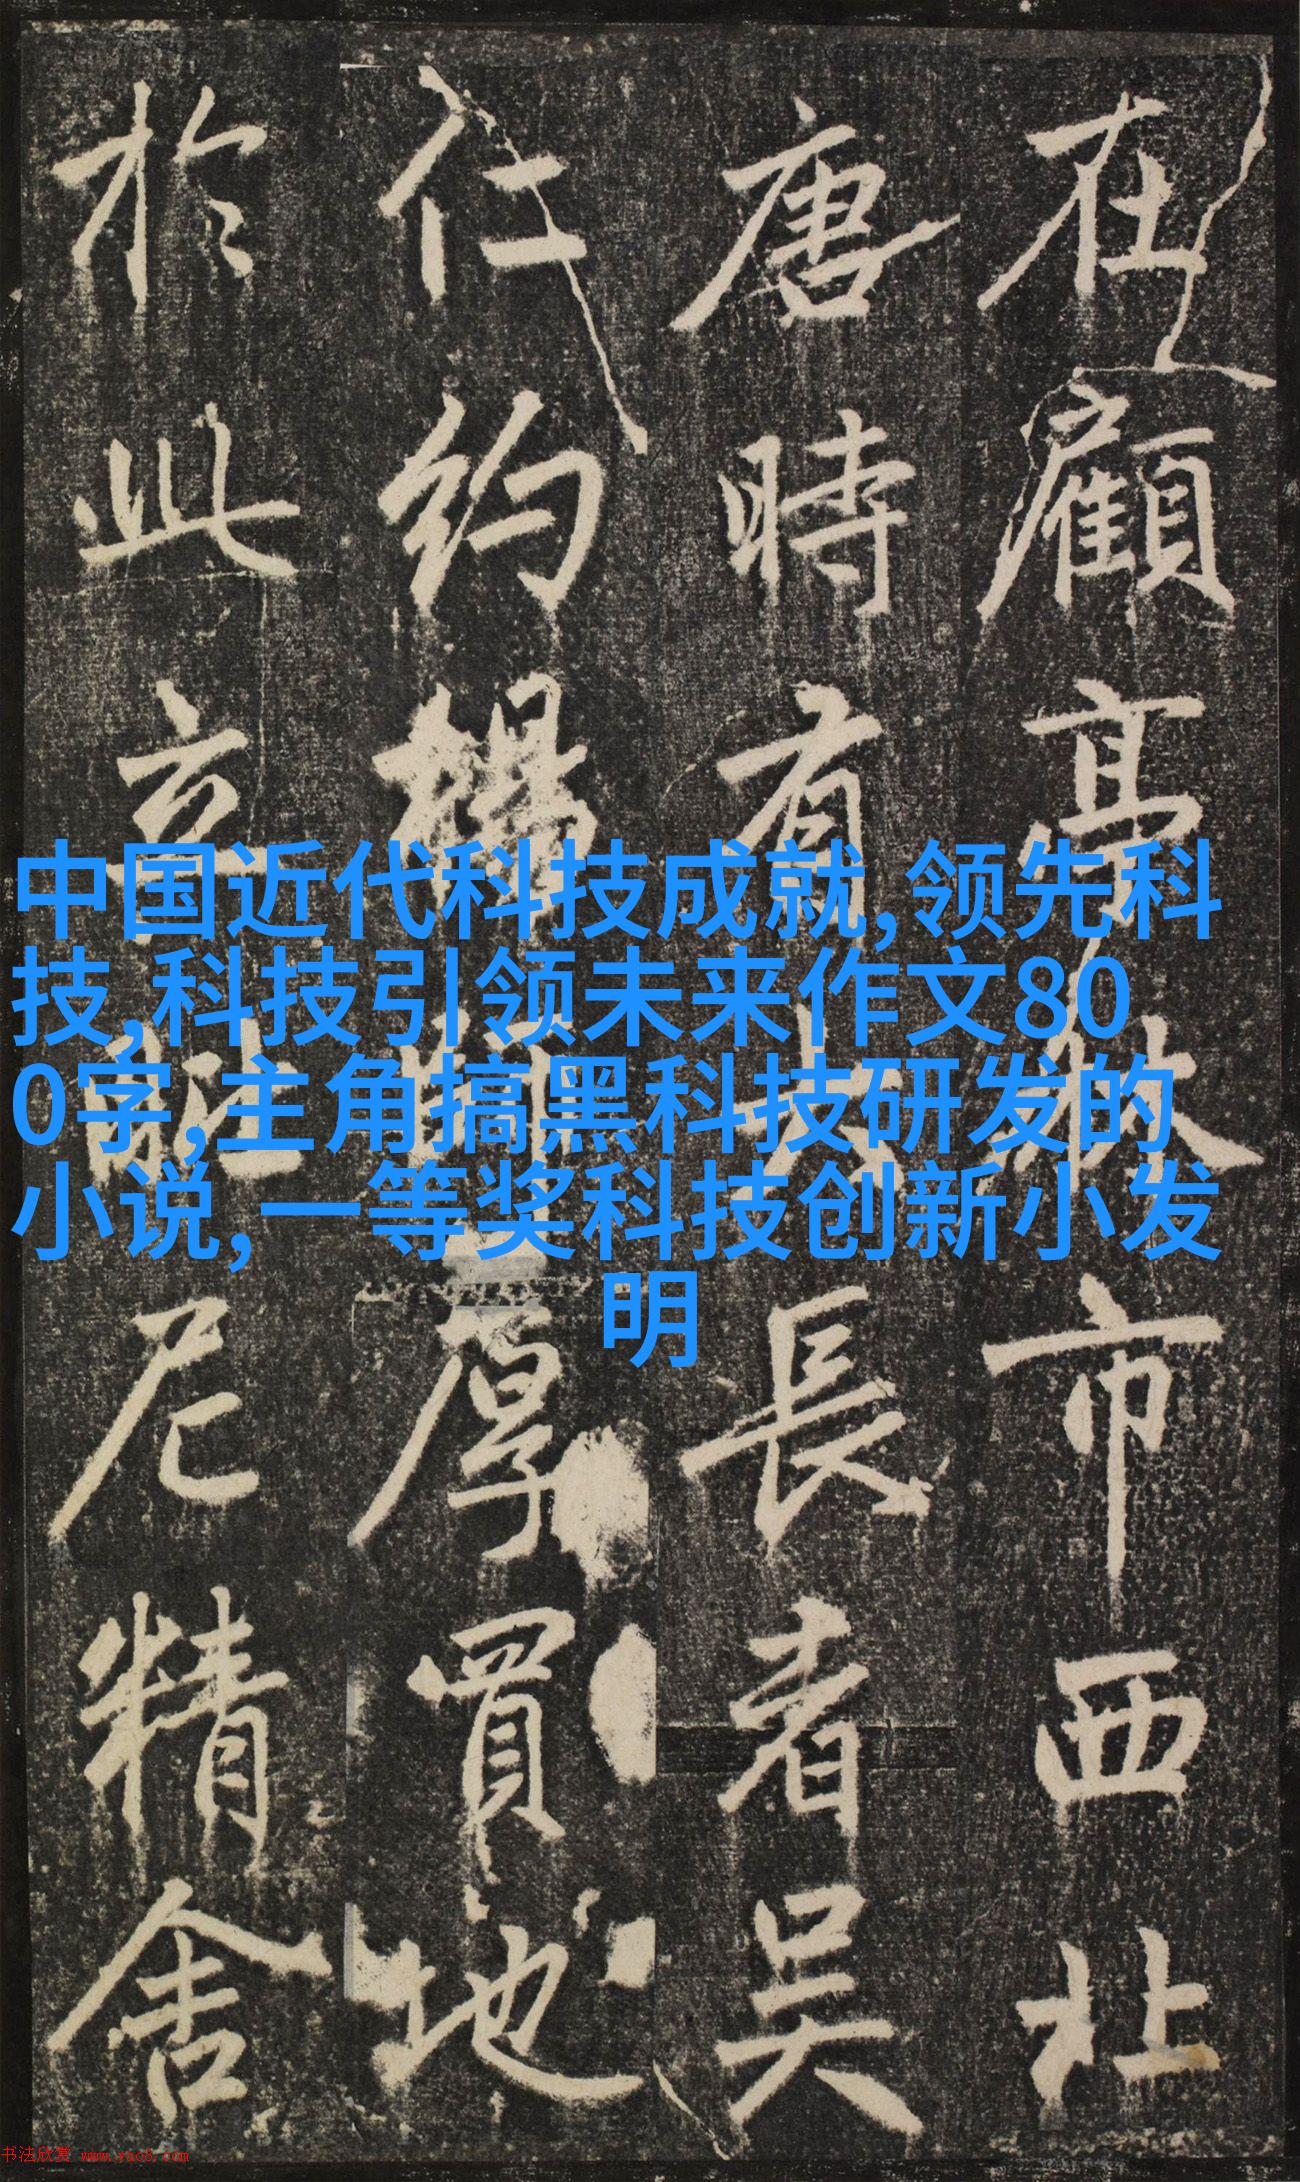 在顧亭林市西北
唐時有長者吳
仁約厚買地
於此立尼精舍
中国近代科技成就,领先科
技,科技引领未来作文80
0字,主角搞黑科技研发的
小说,一等奖科技创新小发
明
书法欣赏 www.yac8.com